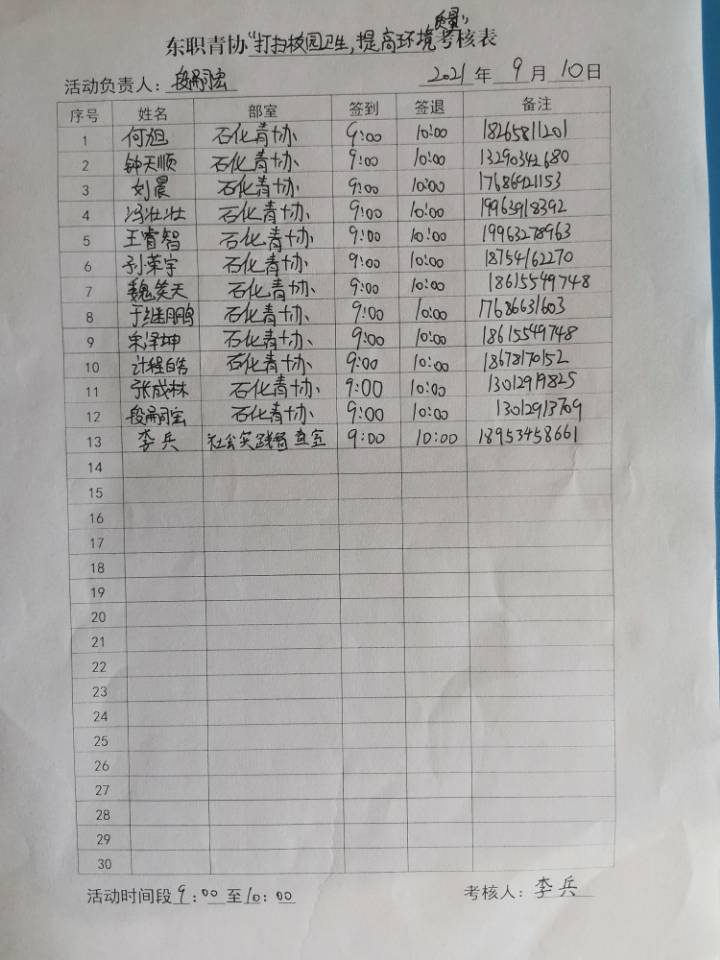 东职青协"打扫校园卫生,提高环境质量"考核表
活动负责人: 2021年9月10日
序号 姓名 部室 签到 签退 备注
1 何旭 石化青协 9:00 10:00 18265811201
2 钟天顺 石化青协 9:00 10:00 13290342680
3 刘晨 石化青协 9:00 10:00 17686921153
4 冯壮壮 石化青协 9:00 10:00 19963918392
5 王睿智 石化青协 9:00 10:00 19963278963
6 孙荣宇 石化青协 9:00 10:00 18754162270
7 魏笑天 石化青协 9:00 10:00 18615549748
8 于继鹏 石化青协 9:00 10:00 17686631603
9 宋泽坤 石化青协 9:00 10:00 18615549748
10 石化青协 9:00 10:00 18678170152
11 张成林 石化青协 9:00 10:00 13012919825
12 石化青协 9:00 10:00 13012913709
13 李兵 社会实践督查室 9:00 10:00 18953458661
14
15
16
17
18
19
20
21
22
23
24
25
26
27
28
29
30
活动时间段9:00至10:00 考核人:李兵